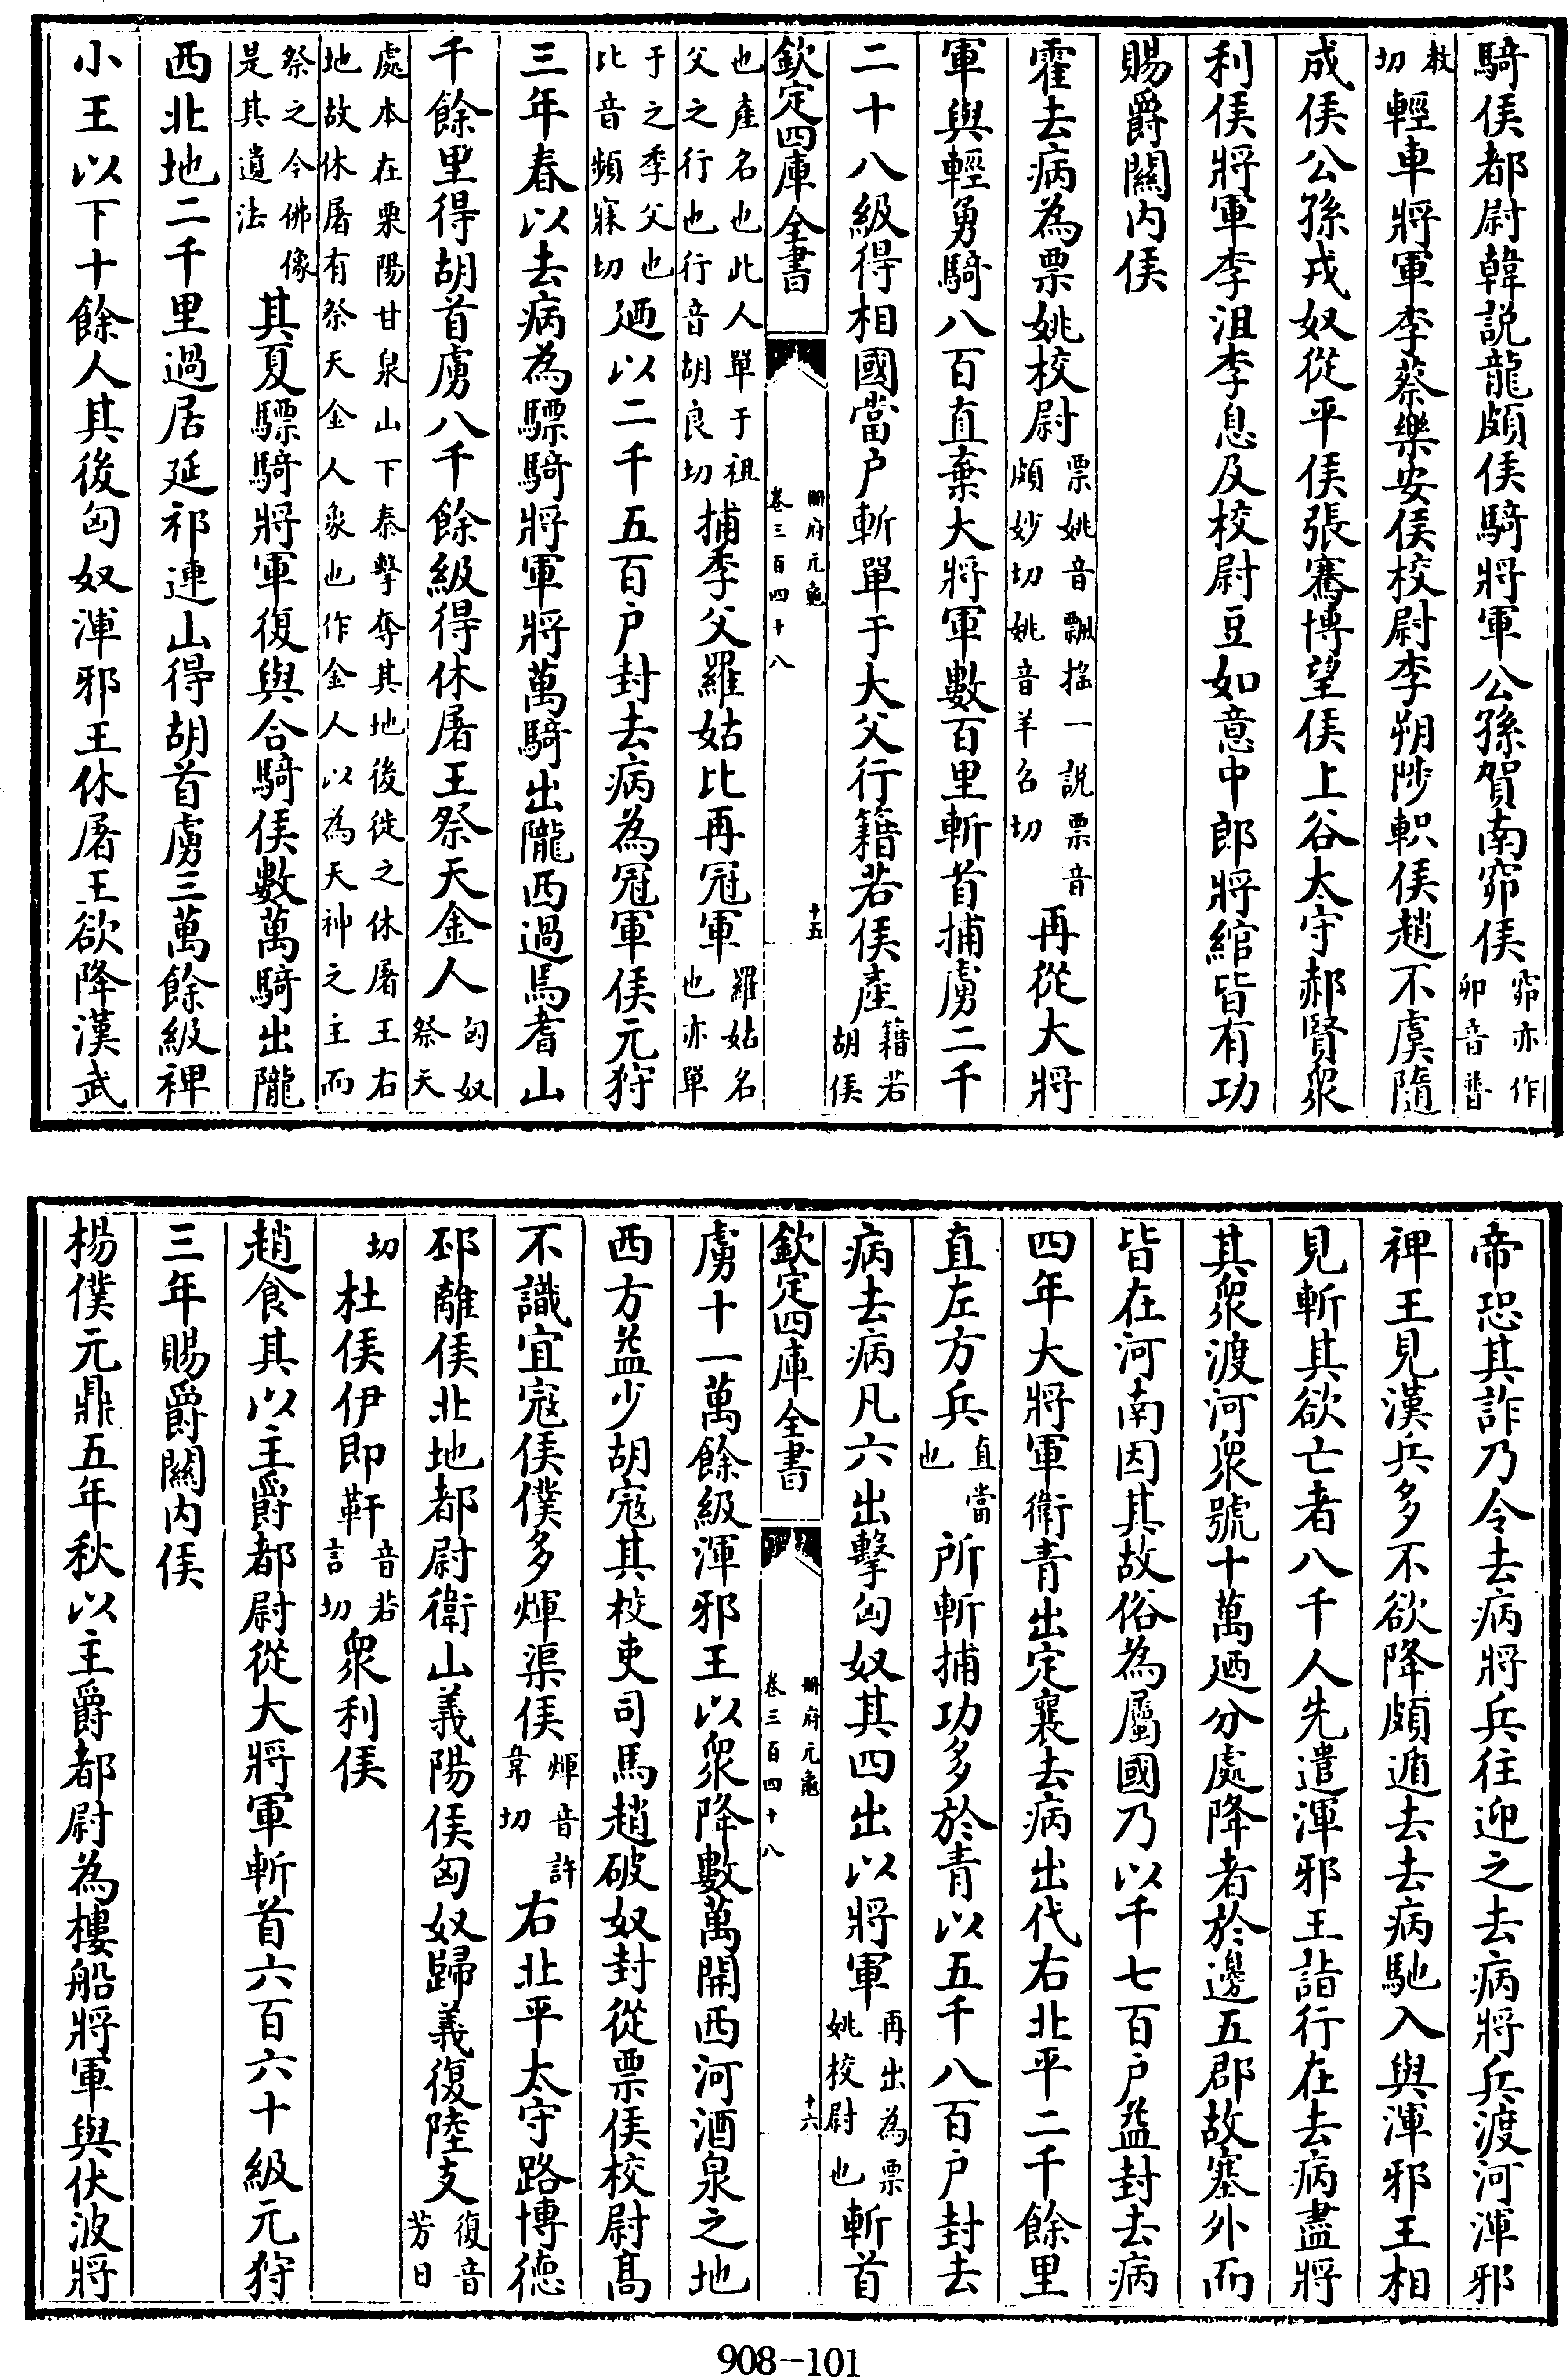 騎侯都尉韓説龍頟侯騎將軍公孫賀南窌侯窌亦作卯音普
教切輕車將軍李蔡樂安侯校尉李朔陟軹侯趙不虞隨
成侯公孫戎奴從平侯張騫博望侯上谷太守郝賢衆
利侯將軍李沮李息及校尉豆如意中郎將綰皆有功
賜爵關内侯
霍去病為票姚校尉票姚音飄揺一説票音頻妙切姚音羊召切再從大將
軍與輕勇騎八百直棄大將軍數百里斬首捕虜二千
二十八級得相國當户斬單于大父行籍若侯産籍若胡侯
欽定四庫全書
冊府元龜
卷三百四十八
十五
也産名也此人單于祖父之行也行音胡良切捕季父羅姑比再冠軍羅姑名也亦單
于之季父也比音頻寐切廼以二千五百户封去病為冠軍侯元狩
三年春以去病為驃騎將軍將萬騎出隴西過焉耆山
千餘里得胡首虜八千餘級得休屠王祭天金人匈奴祭天
處本在栗陽甘泉山下秦擊奪其地後徙之休屠王右地故休屠有祭天金人象也作金人以為天神之主而
祭之今佛像是其遺法其夏驃騎將軍復與合騎侯數萬騎出隴
西北地二千里過居延祁連山得胡首虜三萬餘級裨
小王以下十餘人其後匈奴渾邪王休屠王欲降漢武
帝恐其詐乃令去病將兵往迎之去病將兵渡河渾邪
裨王見漢兵多不欲降頗遁去去病馳入與渾邪王相
見斬其欲亡者八千人先遣渾邪王詣行在去病盡將
其衆渡河衆號十萬廼分處降者於邊五郡故塞外而
皆在河南因其故俗為屬國乃以千七百户益封去病
四年大將軍衛青出定襄去病出代右北平二千餘里
直左方兵直當也所斬捕功多於青以五千八百户封去
病去病凡六出擊匈奴其四出以將軍再出為票姚校尉也斬首
欽定四庫全書
冊府元龜
卷三百四十八
十六
虜十一萬餘級渾邪王以衆降數萬開西河酒泉之地
西方益少胡寇其校吏司馬趙破奴封從票侯校尉髙
不識宜寇侯僕多煇渠侯煇音許韋切右北平太守路博德
邳離侯北地都尉衛山義陽侯匈奴歸義復陸支復音芳日
切杜侯伊即靬音若言切衆利侯
趙食其以主爵都尉從大將軍斬首六百六十級元狩
三年賜爵關内侯
楊僕元鼎五年秋以主爵都尉為樓船將軍與伏波將
908-101